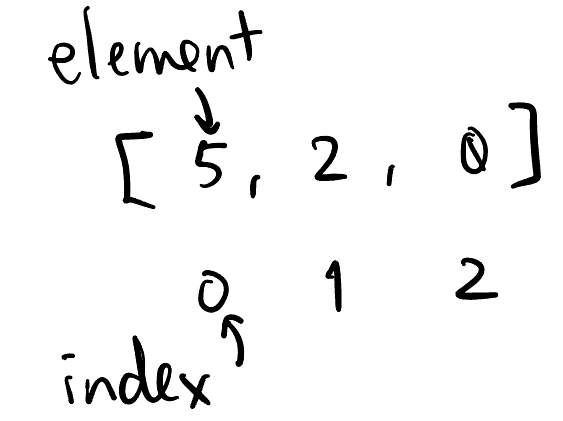 element
[ 5, 2, 0 ]
0 1 2
index